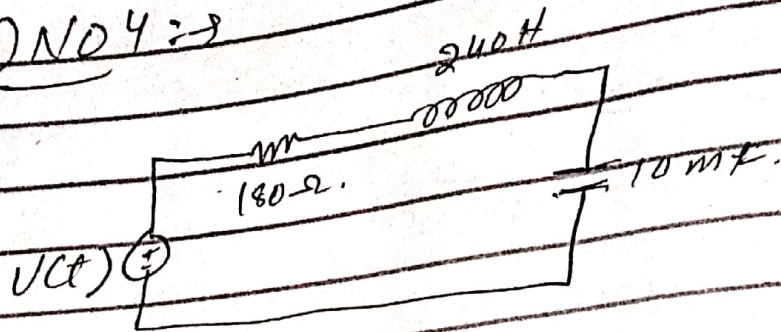 QNO4:→
240H
180Ω.
10mF.
V(t)